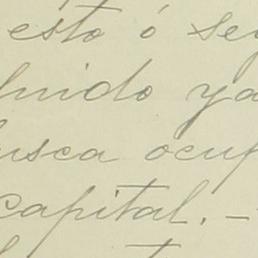 esto ó seg
luido ya
usca ocup
capital. —